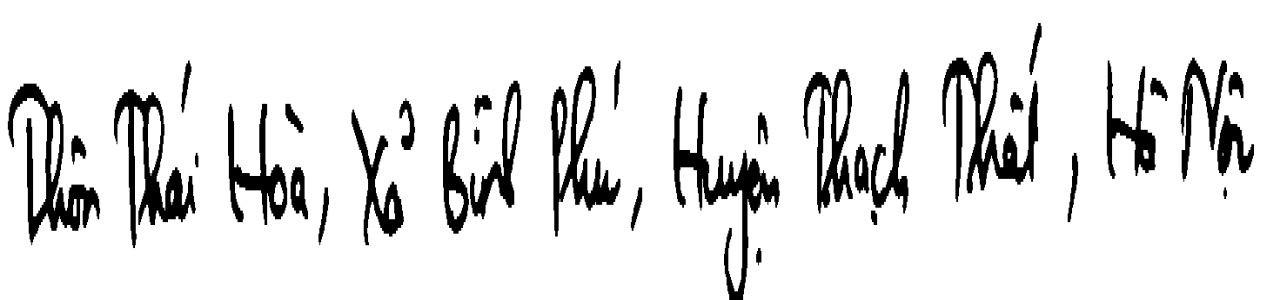 Thôn Thái Hoà, Xã Bình Phú, Huyện Thạch Thất, Hà Nội